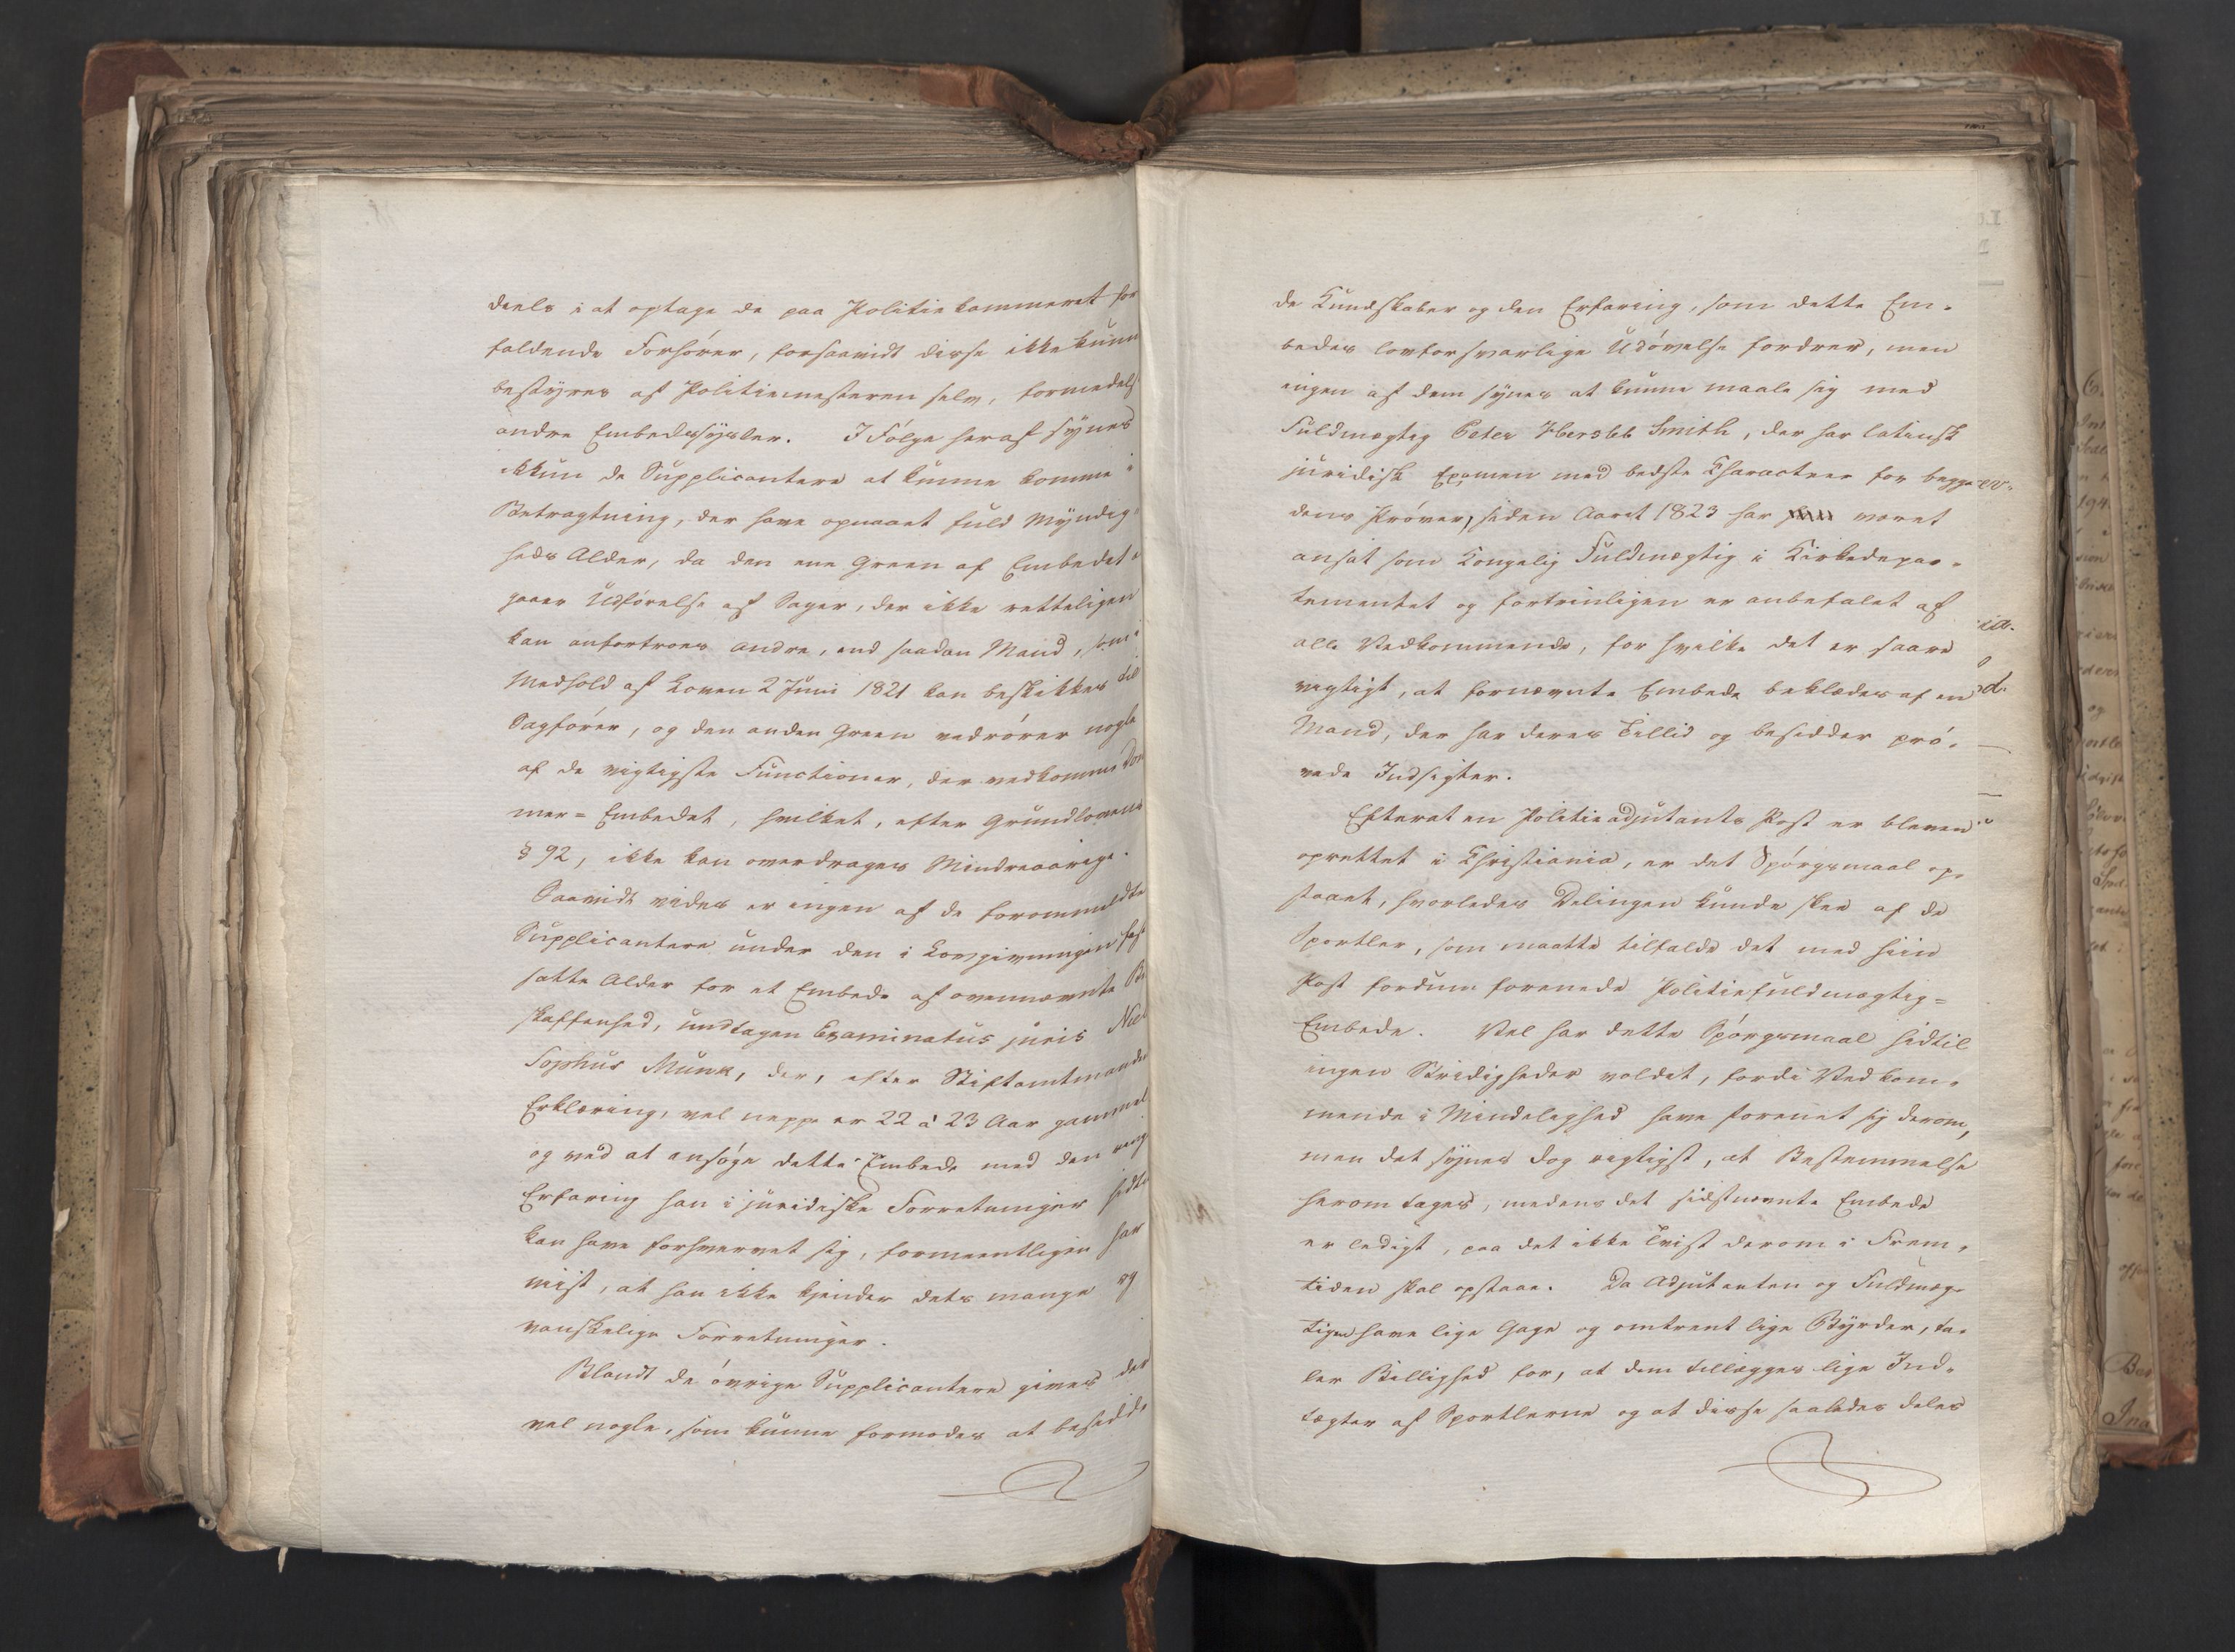 deels i at optage de paa Politiekammeret for
faldende Forhører, forsaavidt disse ikke kunn
bestyres af Politiemesteren selv, formedelst
andre Embedssysler. I Følge heraf synes
ikkun de Supplicantere at kunne komme i
Betragtning, der have opnaaet fuld Myndig-
heds Alder, da den ene Green af Embedet
gaaer Udførelse af Sager, der ikke retteligen
kan anfortroes andre, end saadan Mand, som i
Medhold af Loven 2 Juni 1821 kan beskikkes til
Sagfører, og den anden Green vedrører nogle
af de vigtigste Functioner, der vedkomme Dom
mer-Embedet, hvilket, efter Grundlovens
§ 92, ikke kan overdrages Mindreaarige.
Saavidt vides er ingen af de forommeldte
Supplicantere under den i Lovgivningen fast
satte Alder for et Embede af ovennævnte Be
skaffenhed, undtagen Examinatus juris Niel
Sophus Munk, der, efter Stiftamtmanden
Erklæring, vel neppe er 22 à 23 Aar gammel
og ved at ansøge dette Embede med den ringe
Erfaring han i juridiske Forretninger hidtil
kan have forhvervet sig, formeentligen har
viist, at han ikke kjender dets mange og
vanskelige Forretninger.
Blandt de øvrige Supplicantere gives der
vel nogle, som kunne formodes at besidde
de Kundskaber og den Erfaring, som dette Em-
bedes lovforsvarlige Udøvelse fordrer, men
ingen af dem synes at kunne maale sig med
Fuldmægtig Peter Ibersleb Smith, der har latinsk
juridisk Examen med bedste Characteer for begge
dens Prøver, siden Aaret 1823 har været
ansat som Kongelig Fuldmægtig i Kirkedepar-
tementet og fortrinligen er anbefalet af
alle Vedkommende, for hvilke det er saare
vigtigt, at fornævnte Embede beklædes af en
Mand, der har deres Tillid og besidder prø-
vede Indsigter.
Efterat en Politieadjutants Post er bleven
oprettet i Christiania, er det Spørgsmaal op-
staaet, hvorledes Delingen kunde skee af de
Sportler, som maatte tilfalde det med hiin
Post fordum forenede Politiefuldmægtig-
Embede. Vel har dette Spørgsmaal hidtil
ingen Stridigheder voldet, fordi Vedkom-
mende i Mindelighed have forenet sig derom,
men det synes dog rigtigst, at Bestemmelse
herom tages, medens det sidstnævnte Embede
er ledigt, paa det ikke Tvist derom i Frem-
tiden skal opstaae. Da Adjutanten og Fuldmæg-
tigen have lige Gage og omtrent lige Byrder, ta-
ler Billighed for, at dem tillægges lige Ind-
tægter af Sportlerne og at disse saaledes deles